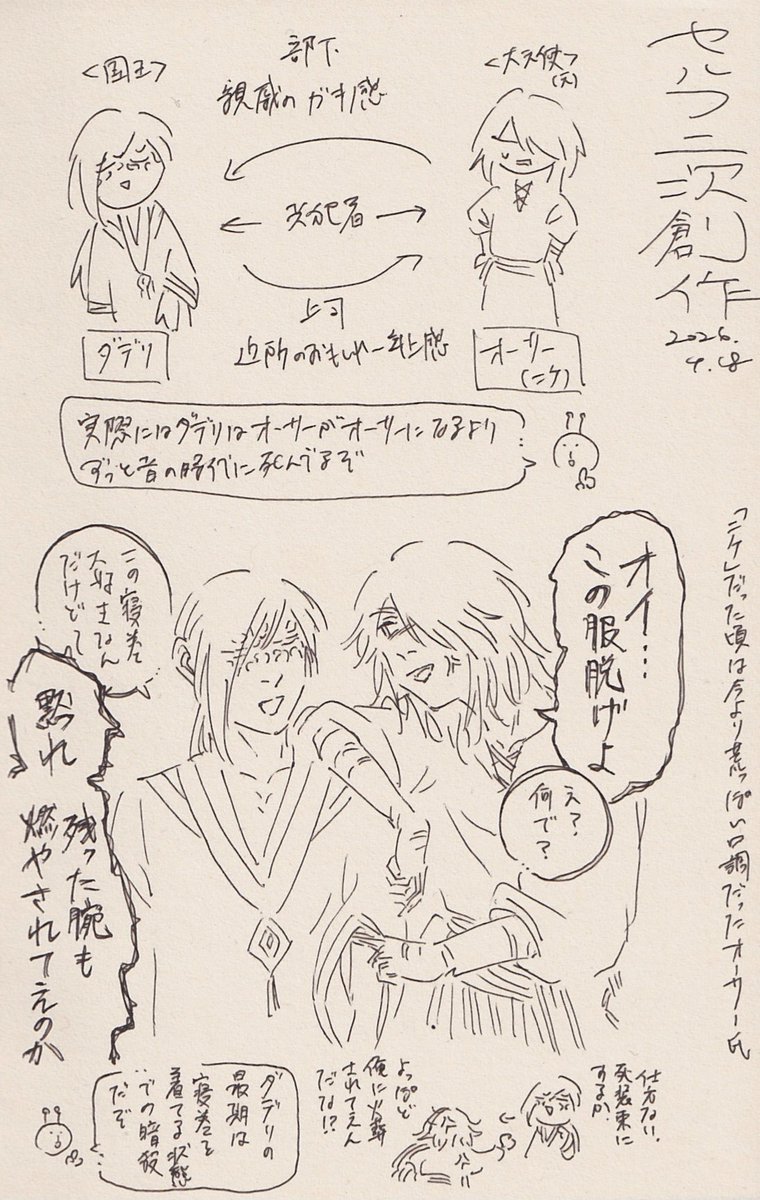 セルフ二次創作
2026.
4.18
<国王>
部下
親戚のガキ感
<大天使>
(元)
共犯者
上司
近所のおもしれー年上感
ダデリ
オーサー
(ニケ)
実際にはダデリはオーサーがオーサーになるより
ずっと昔の時代に死んでるぞ
「ニケ」だった頃は今より荒っぽい口調だったオーサー氏
オイ…
この服脱げよ
え?
何で?
この寝巻
大好きなん
だけど
黙れ
残った腕も
燃やされてえのか
仕方ない、
死装束に
するか
よっぽど
俺に火葬
されてえん
だな!?
ダデリの
最期は
寝巻を
着てる状態
での暗殺
だぞ